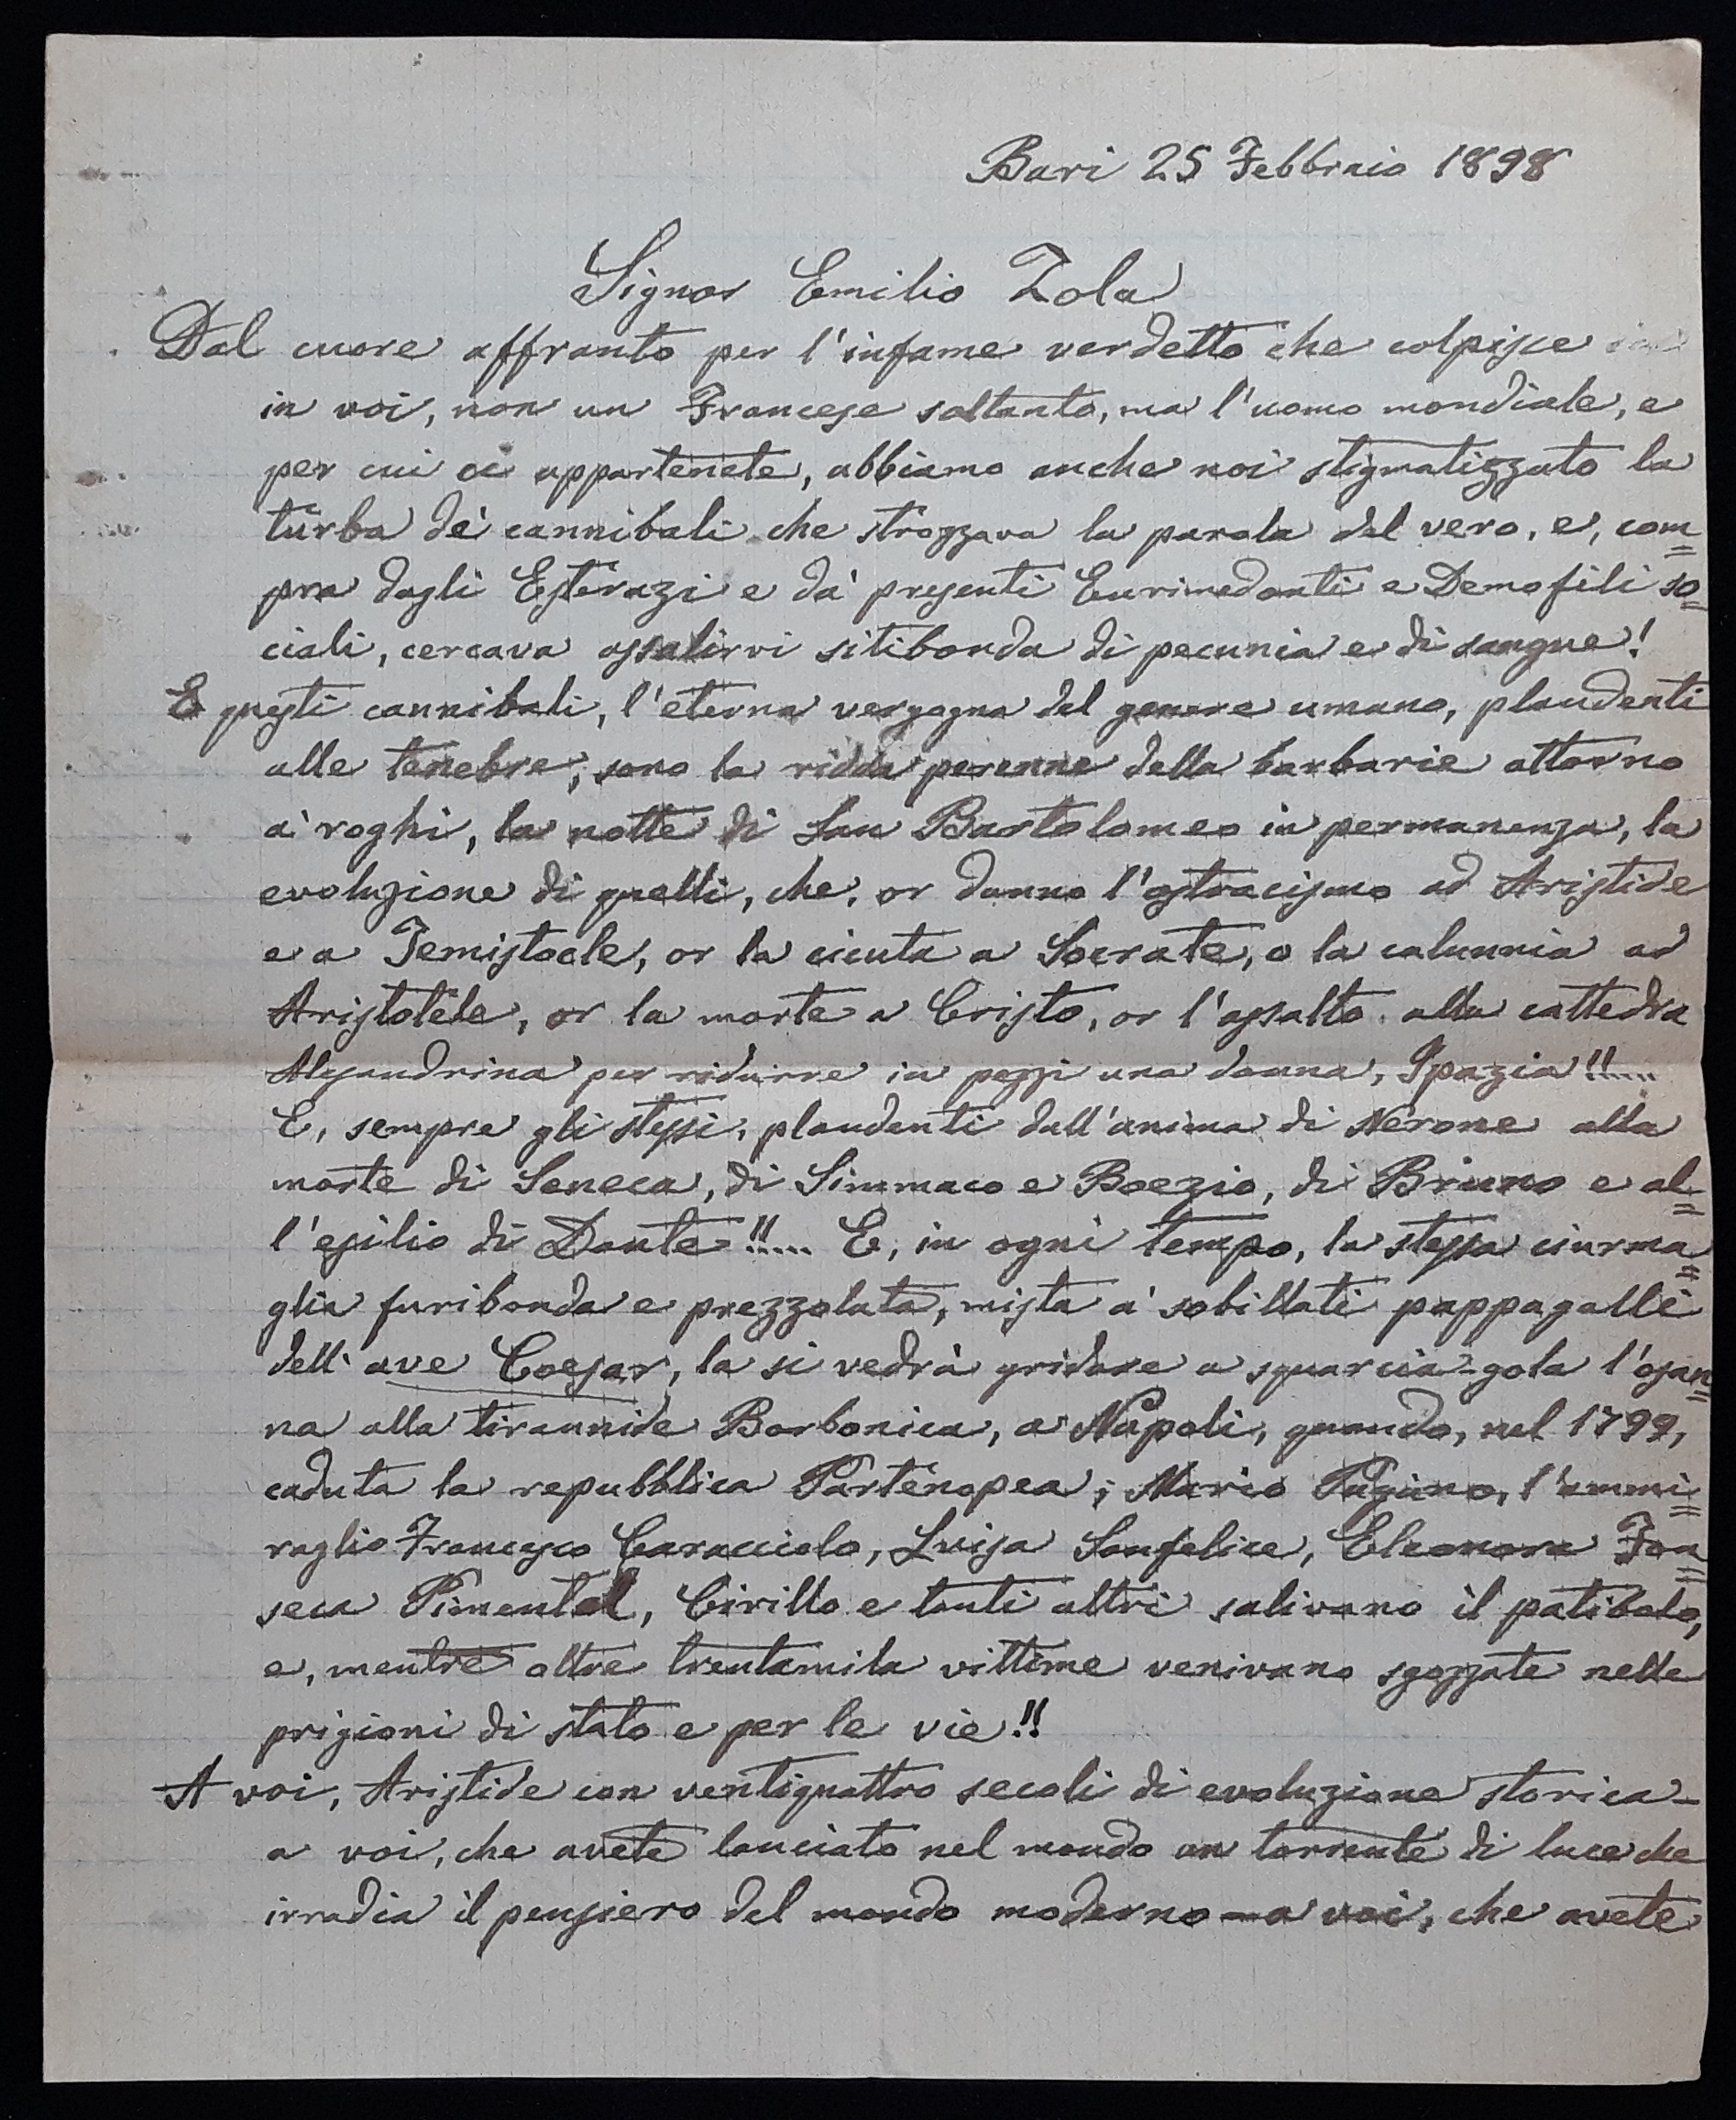 Bari 25 Febbraio 1898
Signor Emilio Zola
Dal cuore affranto per l'infame verdetto che colpisce
in voi, non un Francese soltanto, ma l'uomo mondiale, e
per cui ci appartenete, abbiamo anche noi stigmatizzato la
turba de' cannibali che strozzava la parola del vero, e, com=
pra dagli Esterazi e da' presenti Eurimedonti e Demofili so=
ciali, cercava assalirvi sitibonda di pecunia e di sangue!
E questi cannibali, l'eterna vergogna del genere umano, plaudenti
alle tenebre, sono la ridda perenne della barbarie attorno
a' roghi, la notte di San Bartolomeo in permanenza, la
evoluzione di quelli, che, or danno l'ostracismo ad Aristide
e a Temistocle, or la cicuta a Socrate, o la calunnia ad
Aristotele, or la morte a Cristo, or l'assalto alla cattedra
Alesandrina per ridurre in pezzi una donna, Ipazia!!.....
E, sempre gli stessi, plaudenti dall'anima di Nerone alla
morte di Seneca, di Simmaco e Boezio, di Bruno e al=
l'esilio di Dante!!..... E, in ogni tempo, la stessa ciurma=
glia furibonda e prezzolata, mista a' sobillati pappagalli
dell'ave Coesar, la si vedrà gridare a squarcia-gola l'osan=
na alla tirannide Borbonica, a Napoli, quando, nel 1799,
caduta la repubblica Partenopea, Mario Pagano, l'ammi=
raglio Francesco Caracciolo, Luisa Sanfelice, Eleonora Fon=
seca Pimental, Cirillo e tanti altri salivano il patibolo,
e, mentre altre trentamila vittime venivano sgozzate nelle
prigioni di stato e per le vie!!
A voi, Aristide con ventiquattro secoli di evoluzione storica-
a voi, che avete lanciato nel mondo un torrente di luce che
irradia il pensiero del mondo moderno - a voi, che avete